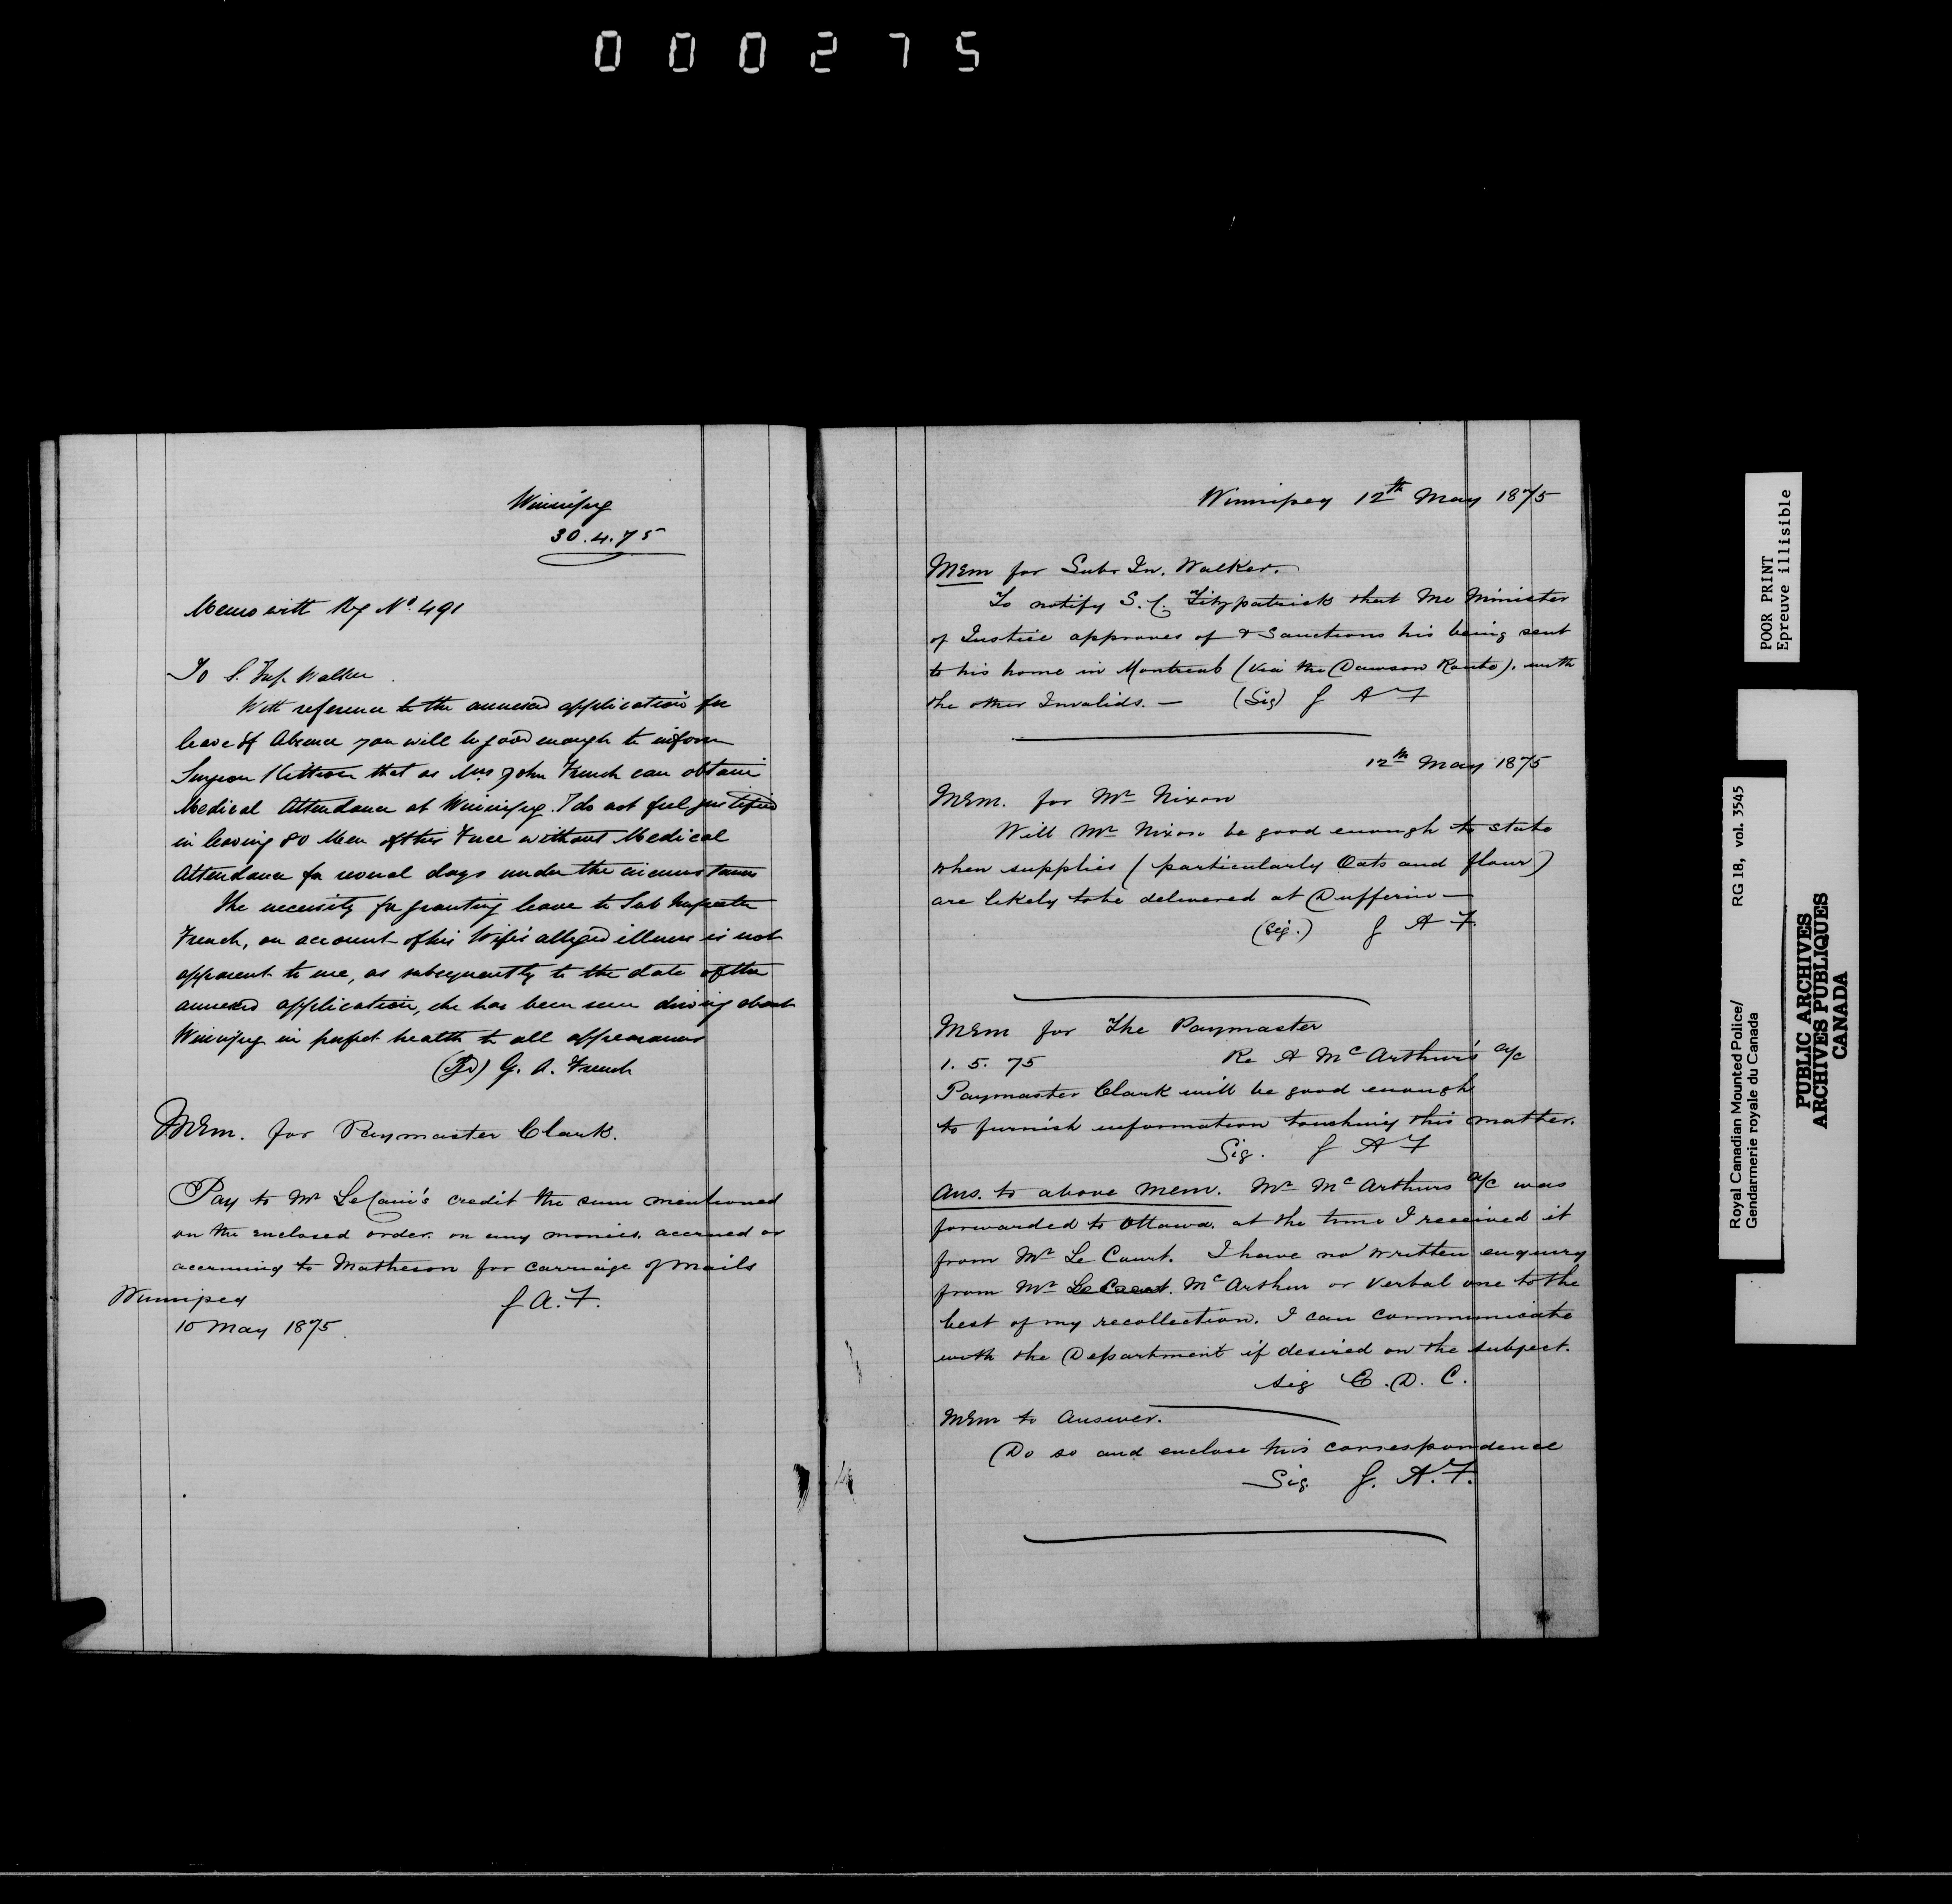 000275
Winnipeg
30.4.75
Memo with Reg No. 491
To S. Insp. Walker
With reference to the annexed application for
leave of Absence you will be good enough to inform
Surgeon Kittson that as Mrs John French can obtain
Medical Attendance at Winnipeg. I do not feel justified
in leaving 80 Men of this Force without Medical
Attendance for several days under the circumstances
The necessity for granting leave to Sub Inspector
French, on account of his Wife's alleged illness is not
apparent to me, as subsequently to the date of the
annexed application, she has been seen driving about
Winnipeg in perfect health to all appearances
(Sgd) G. A. French
Mem. for Paymaster Clark.
Pay to Mr LeCain's credit the sum mentioned
on the enclosed order. on any monies. accrued or
accruing to Matheson for carriage of mails
Winnipeg G A. F.
10 May 1875.
Winnipeg 12th May 1875
Mem for Sub. In. Walker.
To notify S. C. Fitzpatrick that the Minister
of Justice approves of & Sanctions his being sent
to his home in Montreal (via the Dawson Route). with
the other Invalids. — (Sig) G A F
12th May 1875
Mem. for Mr Nixon
Will Mr Nixon be good enough to state
when supplies (particularly Oats and flour)
are likely to be delivered at Dufferin —
(Sig.) G A F.
Mem for The Paymaster
1. 5. 75 Re A McArthur's a/c
Paymaster Clark will be good enough
to furnish information touching this matter.
Sig. G A F
Ans. to above Mem. Mr McArthurs a/c was
forwarded to Ottawa. at the time I received it
from Mr Le Court. I have no written enquiry
from Mr Le Court. McArthur or verbal one to the
best of my recollection. I can communicate
with the Department if desired on the subject.
Sig E. D. C.
Mem to Answer.
Do so and enclose this correspondence
Sig. G. A. F.
POOR PRINT
Epreuve illisible
Royal Canadian Mounted Police/ RG 18, vol. 3545
Gendarmerie royale du Canada
PUBLIC ARCHIVES
ARCHIVES PUBLIQUES
CANADA